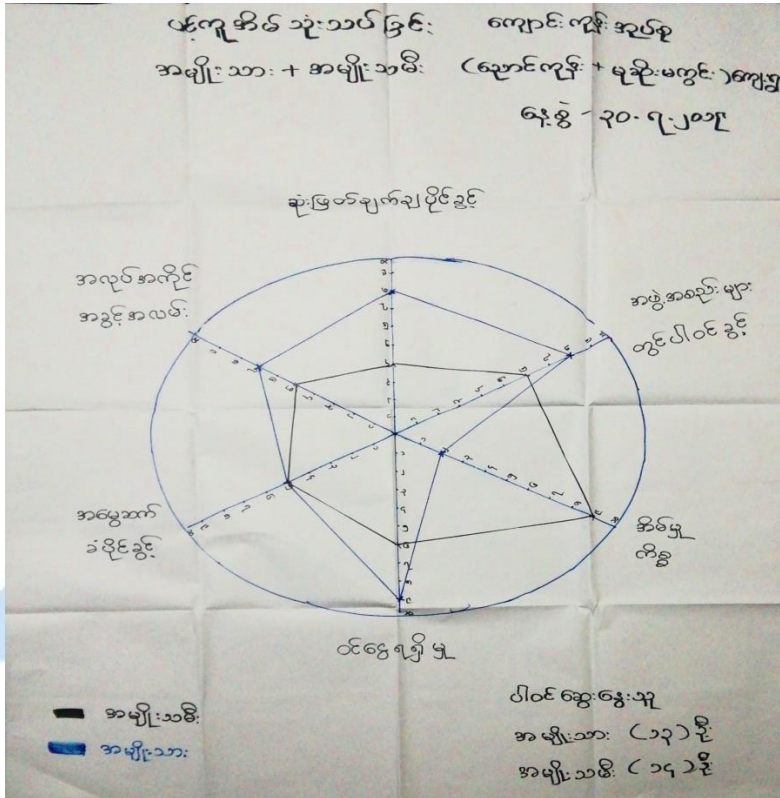 ပင့်ကူအိမ် သုံးသပ်ခြင်း ကျောင်းကုန်း အုပ်စု
အမျိုးသား + အမျိုးသမီး (ညောင်ကုန်း + မုဆိုးမကွင်း) ကျေးရွာ
နေ့စွဲ - ၃၀.၇.၂၀၁၉
ဆုံးဖြတ်ချက်ချပိုင်ခွင့်
အလုပ်အကိုင်
အခွင့်အလမ်း
အဖွဲ့အစည်းများ
တွင်ပါဝင်ခွင့်
အမွေဆက်
ခံပိုင်ခွင့်
အိမ်မှု
ကိစ္စ
ဝင်ငွေရရှိမှု
အမျိုးသမီး
အမျိုးသား
ပါဝင်ဆွေးနွေးသူ
အမျိုးသား (၁၃) ဦး
အမျိုးသမီး (၁၄) ဦး